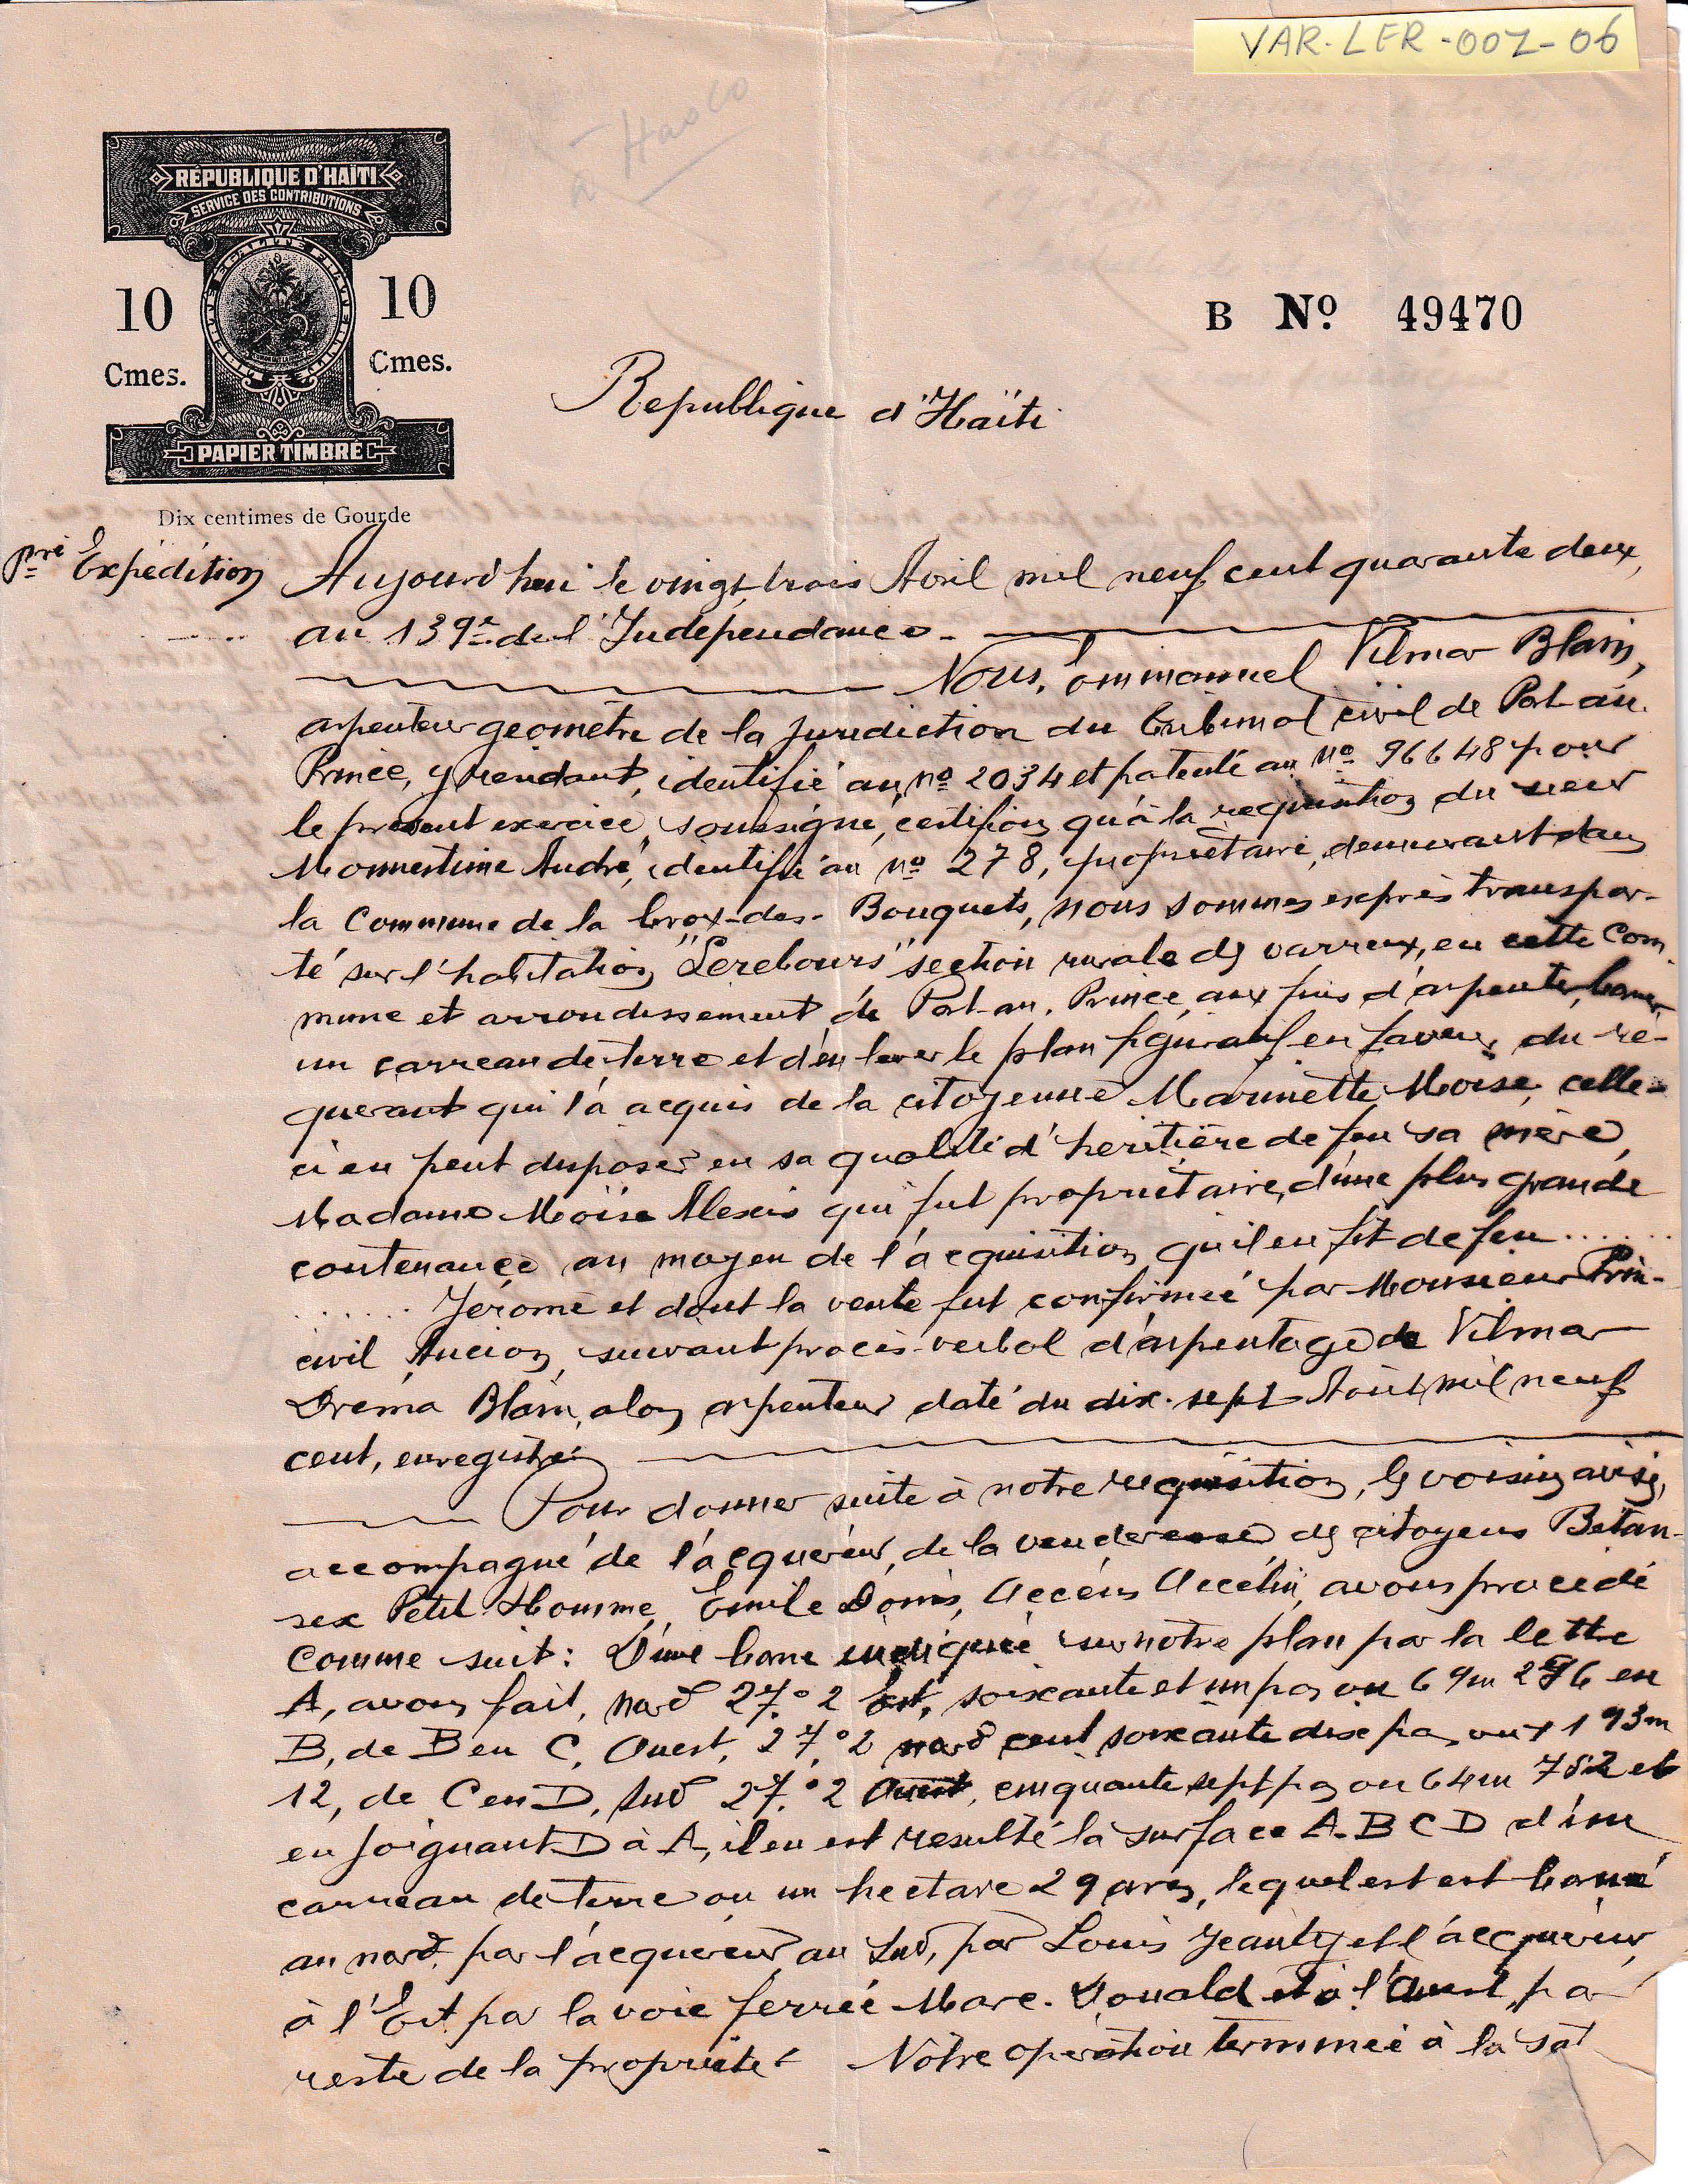 VAR-LER-007-06
à Hasco
RÉPUBLIQUE D'HAÏTI
SERVICE DES CONTRIBUTIONS
10 10
Cmes. Cmes.
PAPIER TIMBRÉ
Dix centimes de Gourde
B No 49470
Republique d'Haïti
Pre Expédition
Aujourd'hui le vingt trois Avril mil neuf cent quarante deux,
au 139e de l'Indépendance.
Nous, Emmanuel Vilmar Blain,
arpenteur géomètre de la juridiction du tribunal civil de Port-au-
Prince, y résidant, identifié au no 2034 et patenté au No 96648 pour
le présent exercice, soussigné, certifions qu'à la requisition du sieur
Monnestime André, identifié au no 278, propriétaire, demeurant dans
la Commune de la Croix-des-Bouquets, nous sommes exprès transpor-
té sur l'habitation "Lerebours" section rurale des varreux, en cette Com-
mune et arrondissement de Port-au-Prince, aux fins d'arpenter, borner
un carreau de terre et d'en lever le plan figuratif en faveur du re-
querant qui l'a acquis de la citoyenne Marinette Moise, celle-
ci en peut disposer en sa qualité d'heritière de feu sa mère,
Madame Moïse Alexis qui fut propriétaire, d'une plus grande
contenance au moyen de l'acquisition qu'il en fit de feu ......
...... Jérome et dont la vente fut confirmée par Monsieur Prin-
civil Aucion, suivant procès-verbal d'arpentage de Vilmar
Dréma Blain, alors arpenteur daté du dix-sept Août mil neuf
cent, enregistré
Pour donner suite à notre requisition, les voisins avisés,
accompagné de l'acquéreur, de la venderesse des citoyens Bétan-
sex Petit Homme, Emile Domis, Accéus Accélu, avons procédé
comme suit: D'une borne indiquée sur notre plan par la lettre
A, avons fait, nord 27.°2 Est, soixante et un pas ou 69m 296 en
B, de B en C, Ouest, 27.°2 nord cent soixante dix pas ou 193m
12, de C en D, Sud 27.°2 Ouest, cinquante sept pas ou 64m 752 et
en joignant D à A, il en est resulté la surface A.B C D d'un
carreau de terre ou un hectare 29 ares, lequel est est borné
au nord, par l'acquereur, au Sud, par Louis Jeanty et l'acquéreur,
à l'Est par la voie ferrée Mac. Donald et à l'Ouest, par
reste de la propriété. Notre opération terminée à la sat